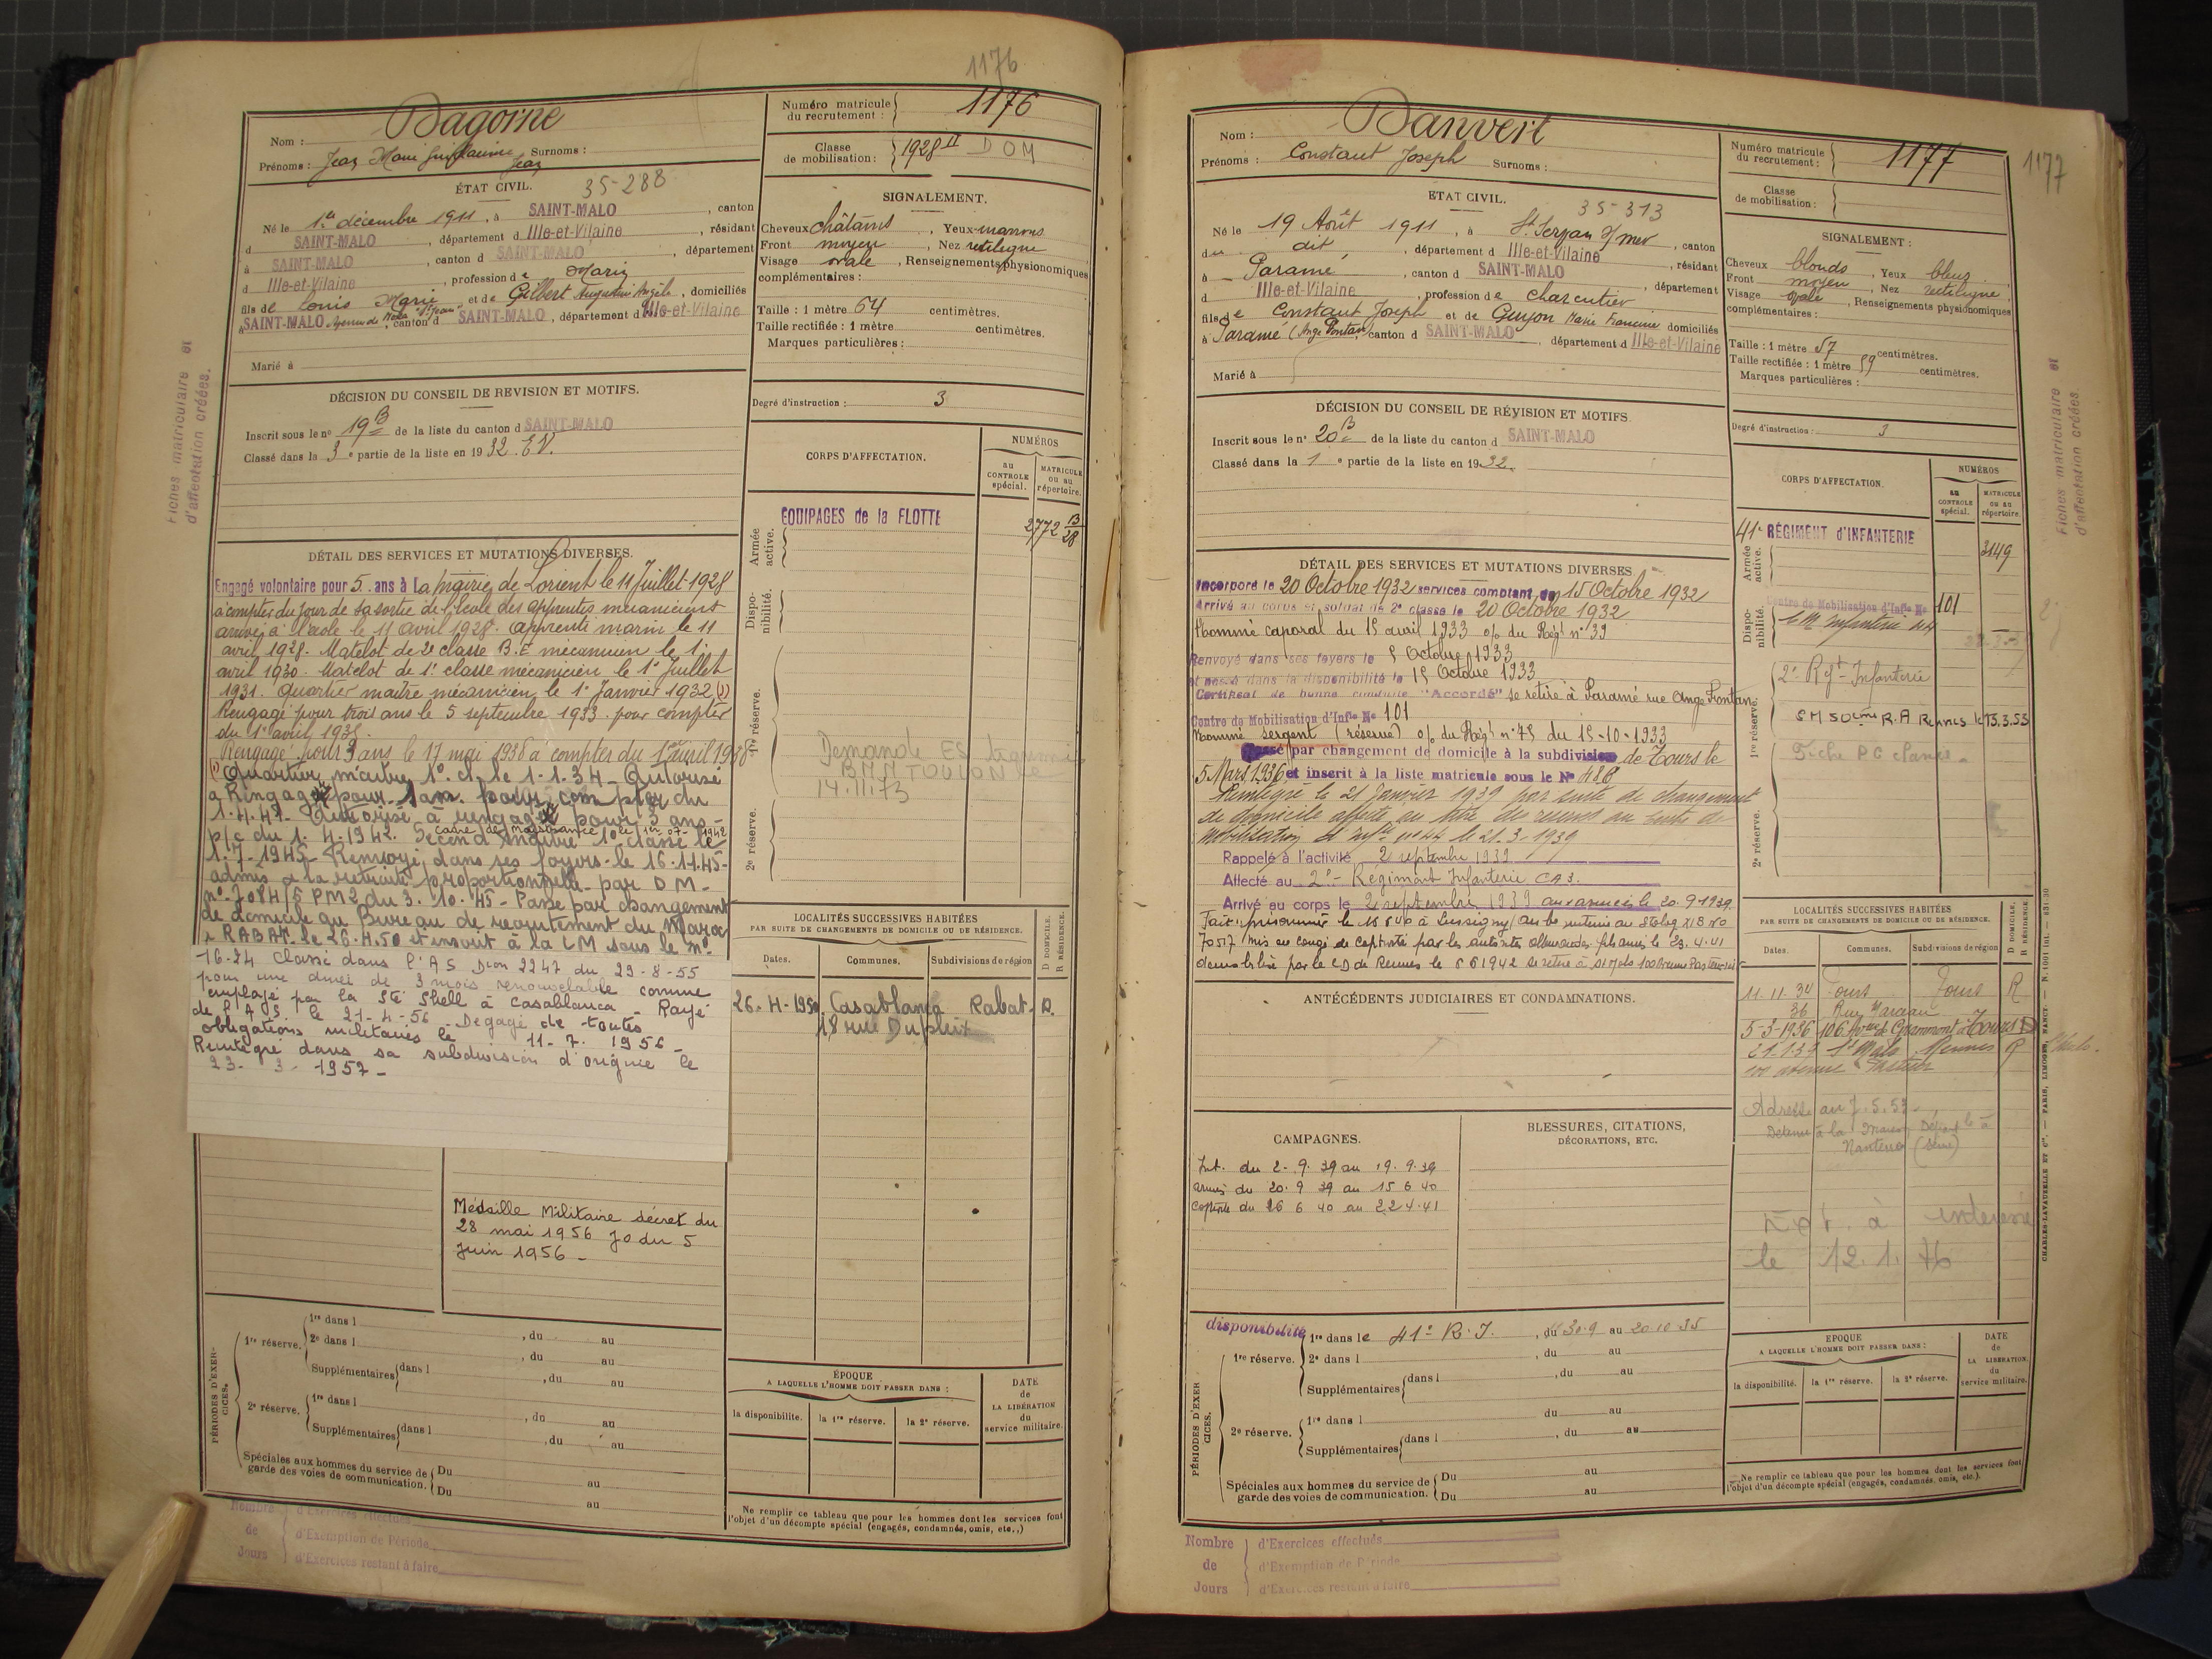 1176
Nom : Dagorne
Prénoms : Jean Marie Guillaume Jean Surnoms :
Numéro matricule du recrutement : 1176
Classe de mobilisation : 1928 II DOM
ÉTAT CIVIL. 35-288
Né le 1er décembre 1911, à SAINT-MALO, canton
d SAINT-MALO, département d Ille-et-Vilaine, résidant
à SAINT-MALO, canton d SAINT-MALO, département
d Ille-et-Vilaine, profession de Marin
fils de Louis Marie et de Gilbert Augustine Angèle, domiciliés
à SAINT-MALO, canton d SAINT-MALO, département d Ille-et-Vilaine
Marié à
SIGNALEMENT.
Cheveux châtains, Yeux marrons
Front moyen, Nez rectiligne
Visage ovale, Renseignements physionomiques
complémentaires :
Taille : 1 mètre 64 centimètres.
Taille rectifiée : 1 mètre centimètres.
Marques particulières :
Degré d'instruction : 3
DÉCISION DU CONSEIL DE REVISION ET MOTIFS.
Inscrit sous le no 19 B de la liste du canton d SAINT-MALO
Classé dans la 3e partie de la liste en 1932. E.V.
CORPS D'AFFECTATION.
NUMÉROS
au CONTROLE spécial.
MATRICULE ou au répertoire.
Armée active.
EQUIPAGES de la FLOTTE
2772 B/28
Dispo-nibilité.
1re réserve.
2e réserve.
BMM TOULON
14.11.73
Fiches matriculaire et
d'affectation créées.
DÉTAIL DES SERVICES ET MUTATIONS DIVERSES.
Engagé volontaire pour 5 ans à La mairie de Lorient le 11 Juillet 1928
à compter du jour de sa sortie de l'école des apprentis mécaniciens
arrivé à l'école le 11 avril 1928. Apprenti marin le 11
avril 1928. Matelot de 2e classe B.E mécanicien le 1er
avril 1930. Matelot de 1e classe mécanicien le 1er Juillet
1931. Quartier maître mécanicien le 1er Janvier 1932 (1)
Rengagé pour trois ans le 5 septembre 1933 pour compter
du 1er avril 1935.
Rengagé pour 3 ans le 17 mai 1938 à compter du 1er avril 1938
(1) Quartier maître 1e cl. le 1-1-34 - Autorisé
à Rengager pour 1 an pour compter du
1-4-41 - Autorisé à rengager pour 3 ans -
p/c du 1-4-1942. Second maître 1ère classe le
1-7-1945 - Renvoyé dans ses foyers le 16-11-45 -
admis à la retraite proportionnelle par DM -
no 7084/5 PM2 du 3-10-45 - Passé par changement
de domicile au Bureau de recrutement du Maroc
à RABAT le 26-4-50 et inscrit à la LM sous le no
16-24 Classé dans l'A S Dion 2247 du 29-8-55
pour une durée de 3 mois renouvelable comme
employé par la Sté Shell à Casablanca - Rayé
de l'A S le 21-4-56 - Dégagé de toutes
obligations militaires le 11-7-1956 -
Réintégré dans sa subdivision d'origine le
23-3-1957 -
Médaille Militaire décret du
28 mai 1956 JO du 5
Juin 1956 -
LOCALITÉS SUCCESSIVES HABITÉES
PAR SUITE DE CHANGEMENTS DE DOMICILE OU DE RÉSIDENCE.
Dates. Communes. Subdivisions de région D DOMICILE. R RÉSIDENCE.
26-4-1950 Casablanca Rabat D.
18 rue Dupleix
PÉRIODES D'EXERCICES.
1re réserve. 1re dans l , du au
2e dans l , du au
Supplémentaires dans l , du au
, du au
2e réserve. 1re dans l , du au
Supplémentaires dans l , du au
Spéciales aux hommes du service de Du au
garde des voies de communication. Du au
ÉPOQUE
A LAQUELLE L'HOMME DOIT PASSER DANS :
la disponibilité. la 1re réserve. la 2e réserve.
DATE de LA LIBÉRATION du service militaire.
Ne remplir ce tableau que pour les hommes dont les services font
l'objet d'un décompte spécial (engagés, condamnés, omis, etc.,)
Nombre de Jours
d'Exercices effectués
d'Exemption de Période
d'Exercices restant à faire
1177
Nom : Danvert
Prénoms : Constant Joseph Surnoms :
Numéro matricule du recrutement : 1177
Classe de mobilisation :
ÉTAT CIVIL. 35-313
Né le 19 Août 1911, à St Servan s/mer, canton
du dit, département d Ille-et-Vilaine, résidant
à Paramé, canton d SAINT-MALO, département
d Ille-et-Vilaine, profession de charcutier
fils de Constant Joseph et de Guyon Marie Francine domiciliés
à Paramé (Ange Fontan), canton d SAINT-MALO, département d Ille-et-Vilaine
Marié à
SIGNALEMENT :
Cheveux blonds, Yeux bleus
Front moyen, Nez rectiligne
Visage ovale, Renseignements physionomiques
complémentaires :
Taille : 1 mètre 57 centimètres.
Taille rectifiée : 1 mètre 59 centimètres.
Marques particulières :
Degré d'instruction : 3
DÉCISION DU CONSEIL DE RÉVISION ET MOTIFS.
Inscrit sous le no 20 B de la liste du canton d SAINT-MALO
Classé dans la 1e partie de la liste en 1932.
CORPS D'AFFECTATION.
NUMÉROS
au CONTROLE spécial.
MATRICULE ou au répertoire.
Armée active.
41e RÉGIMENT d'INFANTERIE
3149
Dispo-nibilité.
Centre de Mobilisation d'Infie No 101
C M Infanterie 44
1re réserve.
2e Rgt Infanterie
SM 50ème R.A Rennes le 13.3.53
2e réserve.
Fiche PC
Fiches matriculaire et
d'affectation créées.
DÉTAIL DES SERVICES ET MUTATIONS DIVERSES.
Incorporé le 20 Octobre 1932 services comptant du 15 Octobre 1932
Arrivé au corps et soldat de 2e classe le 20 Octobre 1932
Nommé caporal du 15 avril 1933 o/ du Régt no 39
Renvoyé dans ses foyers le 5 Octobre 1933
et passé dans la disponibilité le 15 Octobre 1933
Certificat de bonne conduite "Accordé" se retire à Paramé rue Ange Fontan
Centre de Mobilisation d'Infie No 101
Nommé sergent (réserve) o/ du Régt no 75 du 15-10-1933
Passé par changement de domicile à la subdivision de Tours le
5 Mars 1936 et inscrit à la liste matricule sous le No 486
Réintégré le 21 Janvier 1939 par suite de changement
de domicile affecté au titre des réserves au centre de
mobilisation d'infie no 44 le 21-3-1939
Rappelé à l'activité 2 septembre 1939
Affecté au 2e Régiment Infanterie CA3.
Arrivé au corps le 2 septembre 1939 aux armées le 20-9-1939.
Fait prisonnier le à Aube interné au Stalag XI B no
70517 mis en congé de captivité par les autorités allemandes le 23.4.41
démobilisé par le CD de Rennes le 6 6 1942 se retire à St Malo 100 Avenue Pasteur
ANTÉCÉDENTS JUDICIAIRES ET CONDAMNATIONS.
CAMPAGNES.
Int. du 2-9-39 au 19-9-39
armées du 20-9 39 au 15 6 40
captivité du 16 6 40 au 22 4-41
BLESSURES, CITATIONS,
DÉCORATIONS, ETC.
LOCALITÉS SUCCESSIVES HABITÉES
PAR SUITE DE CHANGEMENTS DE DOMICILE OU DE RÉSIDENCE.
Dates. Communes. Subdivisions de région D DOMICILE. R RÉSIDENCE.
11-11-34 Tours Tours R
36 Rue Marceau
5-3-1936 106 Avenue de Grammont à Tours D
21.1.39 St Malo Rennes R
100 avenue Pasteur
Adresse au 7.5.57 -
Détenu à la Maison Départle à
Nanterre (Seine)
à intéressé
le 12.1.76
PÉRIODES D'EXERCICES.
disponibilité 1re dans le 41e R.I., du 30-9 au 20 10 35
1re réserve. 2e dans l , du au
Supplémentaires dans l , du au
2e réserve. 1re dans l du au
Supplémentaires dans l , du au
Spéciales aux hommes du service de Du au
garde des voies de communication. Du au
EPOQUE
A LAQUELLE L'HOMME DOIT PASSER DANS :
la disponibilité. la 1re réserve. la 2e réserve.
DATE de LA LIBERATION du service militaire.
Ne remplir ce tableau que pour les hommes dont les services font
l'objet d'un décompte spécial (engagés, condamnés, omis, etc.).
CHARLES-LAVAUZELLE ET Cie. — PARIS, LIMOGES, NANCY
Nombre de Jours
d'Exercices effectués
d'Exemption de Période
d'Exercices restant à faire